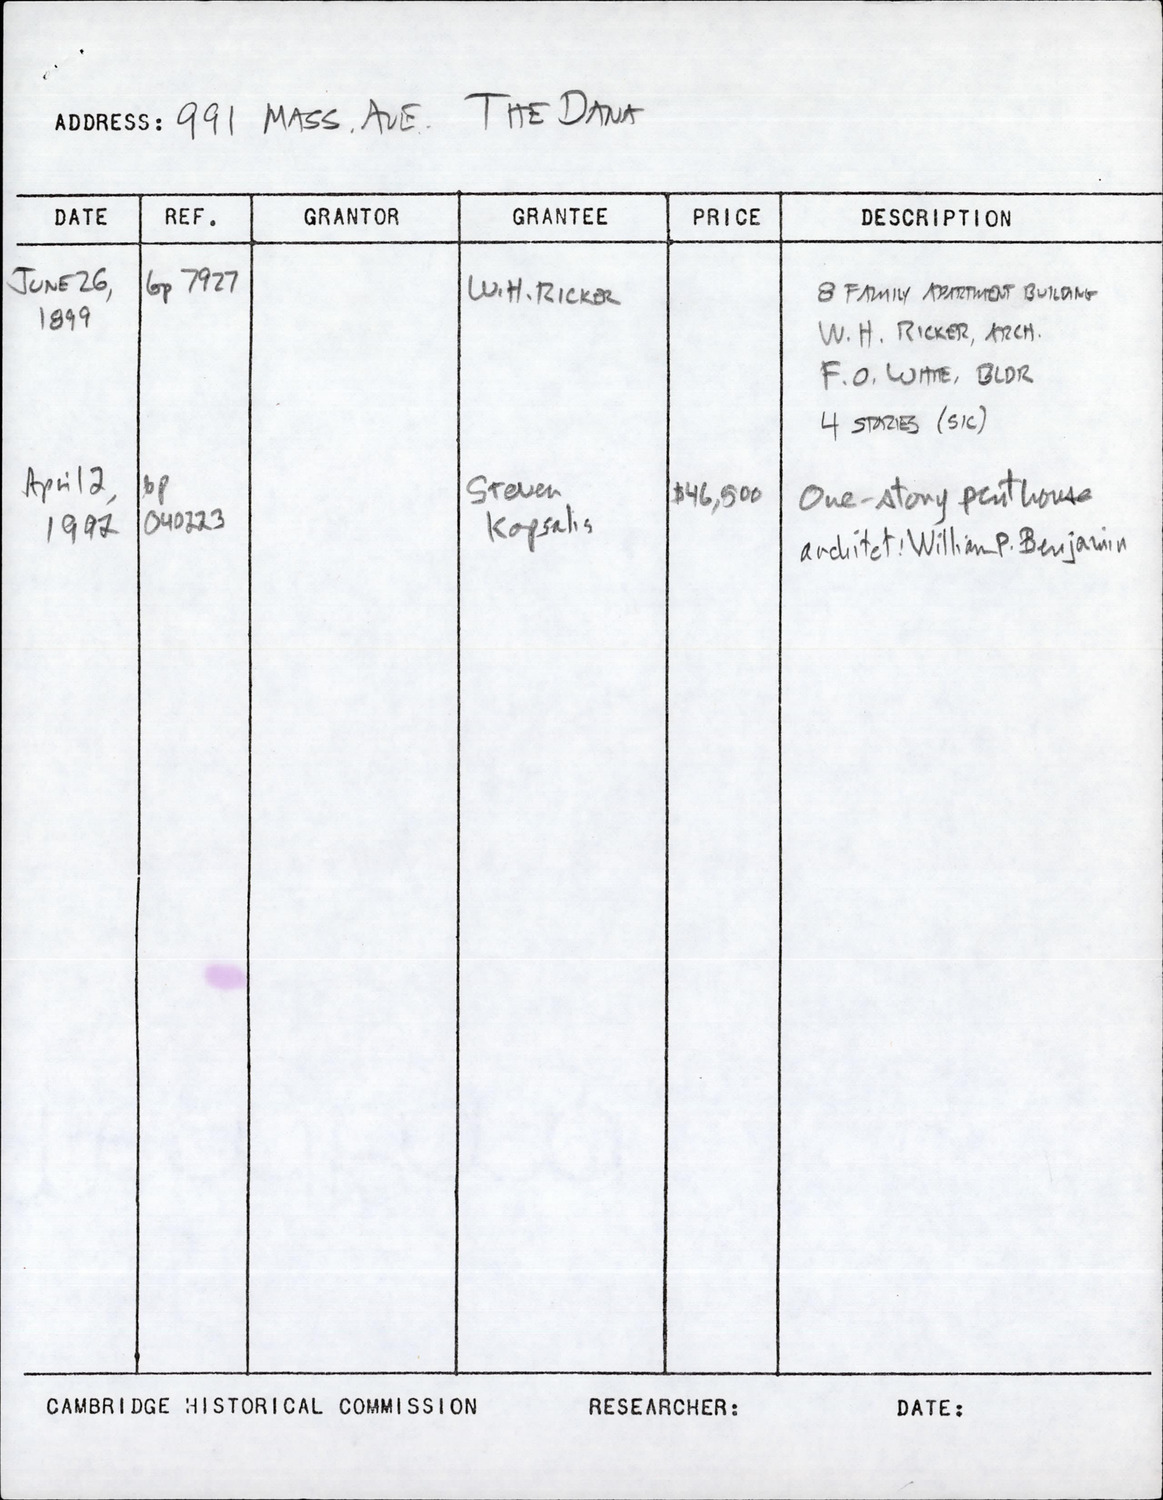 ADDRESS: 991 MASS. AVE. THE DANA
DATE REF. GRANTOR GRANTEE PRICE DESCRIPTION
JUNE 26, bp 7927 W.H. RICKER 8 FAMILY APARTMENT BUILDING
1899 W. H. RICKER, ARCH.
F. O. WHITE, BLDR
4 STORIES (SIC)
April 2, bp Steven $46,500 One-story penthouse
1992 040223 Kapsalis architet: William P. Benjamin
CAMBRIDGE HISTORICAL COMMISSION RESEARCHER: DATE: